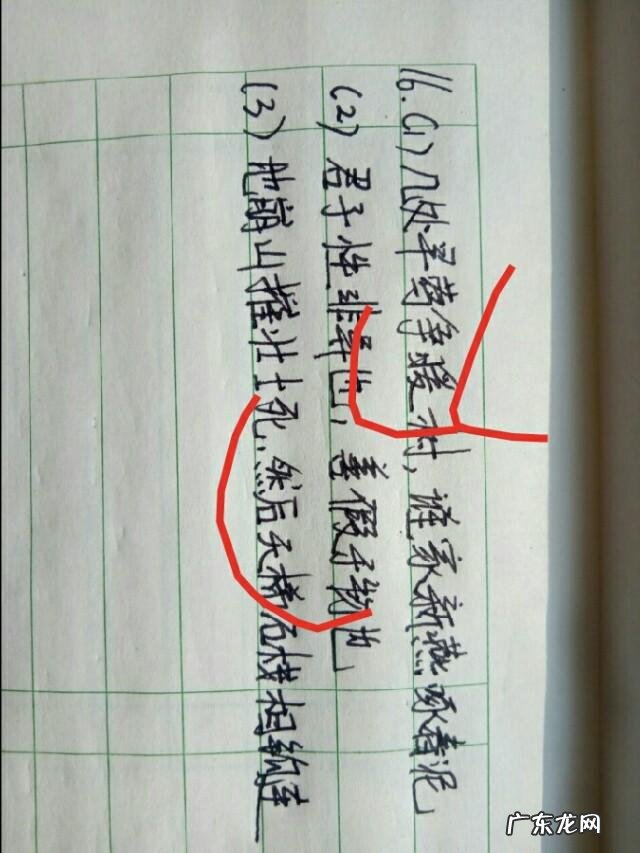 16.(1)几处早莺争暖树,谁家新燕啄春泥
(2)君子性非异也,善假于物也
(3)地崩山摧壮士死,然后天梯石栈相钩连
广东龙网